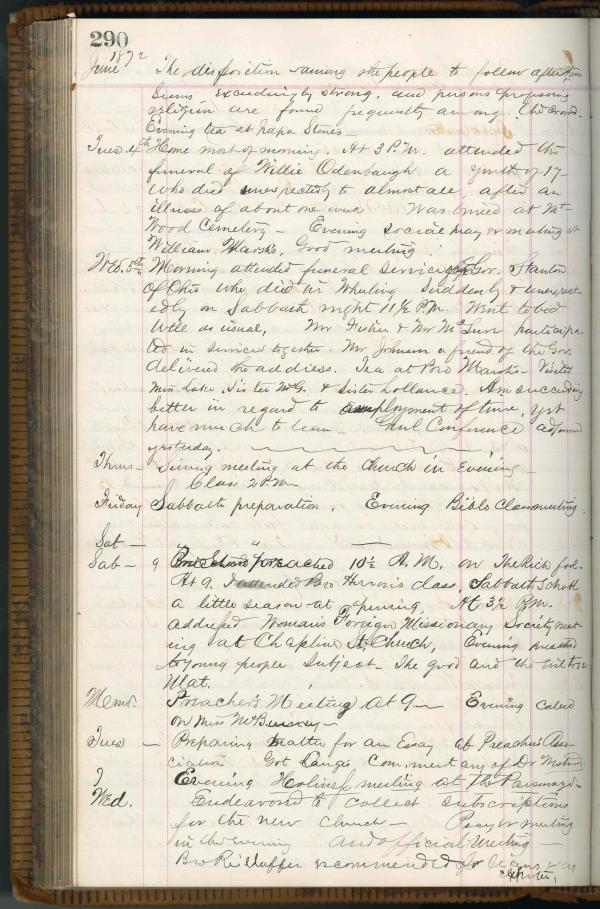 290
June 1872 The disposition among the people to follow after
seems exceedingly strong, and persons professing
religion are found frequently among the crowd.
Evening tea at Stones -
Tues 4th Home most of morning. At 3 P.M. attended the
funeral of Willie Odenbaugh a youth of 17 -
who died unexpectedly to almost all, after an
illness of about one week Was buried at Mt -
Wood Cemetery - Evening social prayer meeting at
William Marsh's, Good meeting
Wed. 5th Morning attended funeral services of Gov. Stanton
of Ohio who died in Wheeling suddenly & unexpect-
edly on Sabbath night 11½ P.M. Went to bed
well as usual, Mr Fisher & Mr participa-
ted in service together. Mr Johnson a friend of the Gov.
delivered the address. Tea at Bro Marsh's - Visited
Miss Lake, Sister & Sister Am succeeding
better in regard to employment of time, yet
have much to learn - Genl Conference adjourned
yesterday.
Thurs - Sewing meeting at the Church in Evening -
Class 2 P.M.
Friday Sabbath preparation. Evening Bible Class meeting.
Sat - " " —
Sab - 9 Bro preached 10½ A.M. on The Rich fool.
At 9. I attended Bro class, Sabbath School
a little season at opening, At 3½ P.M.
addressed Woman's Foreign Missionary Society meet-
ing at Chapline St. Church, Evening preached
to young people Subject - The good and the evil
Mat.
Mond. Preacher's Meeting at 9 - Evening called
on Miss
Tues - Preparing matter for an Essay at Preacher's Asso-
ciation Got Langes Commentary of Dr
Evening Holiness meeting at the Parsonage -
Wed. Endeavored to collect subscriptions
for the new church - Prayer meeting
in the evening and official Meeting -
Bro recommended for & as